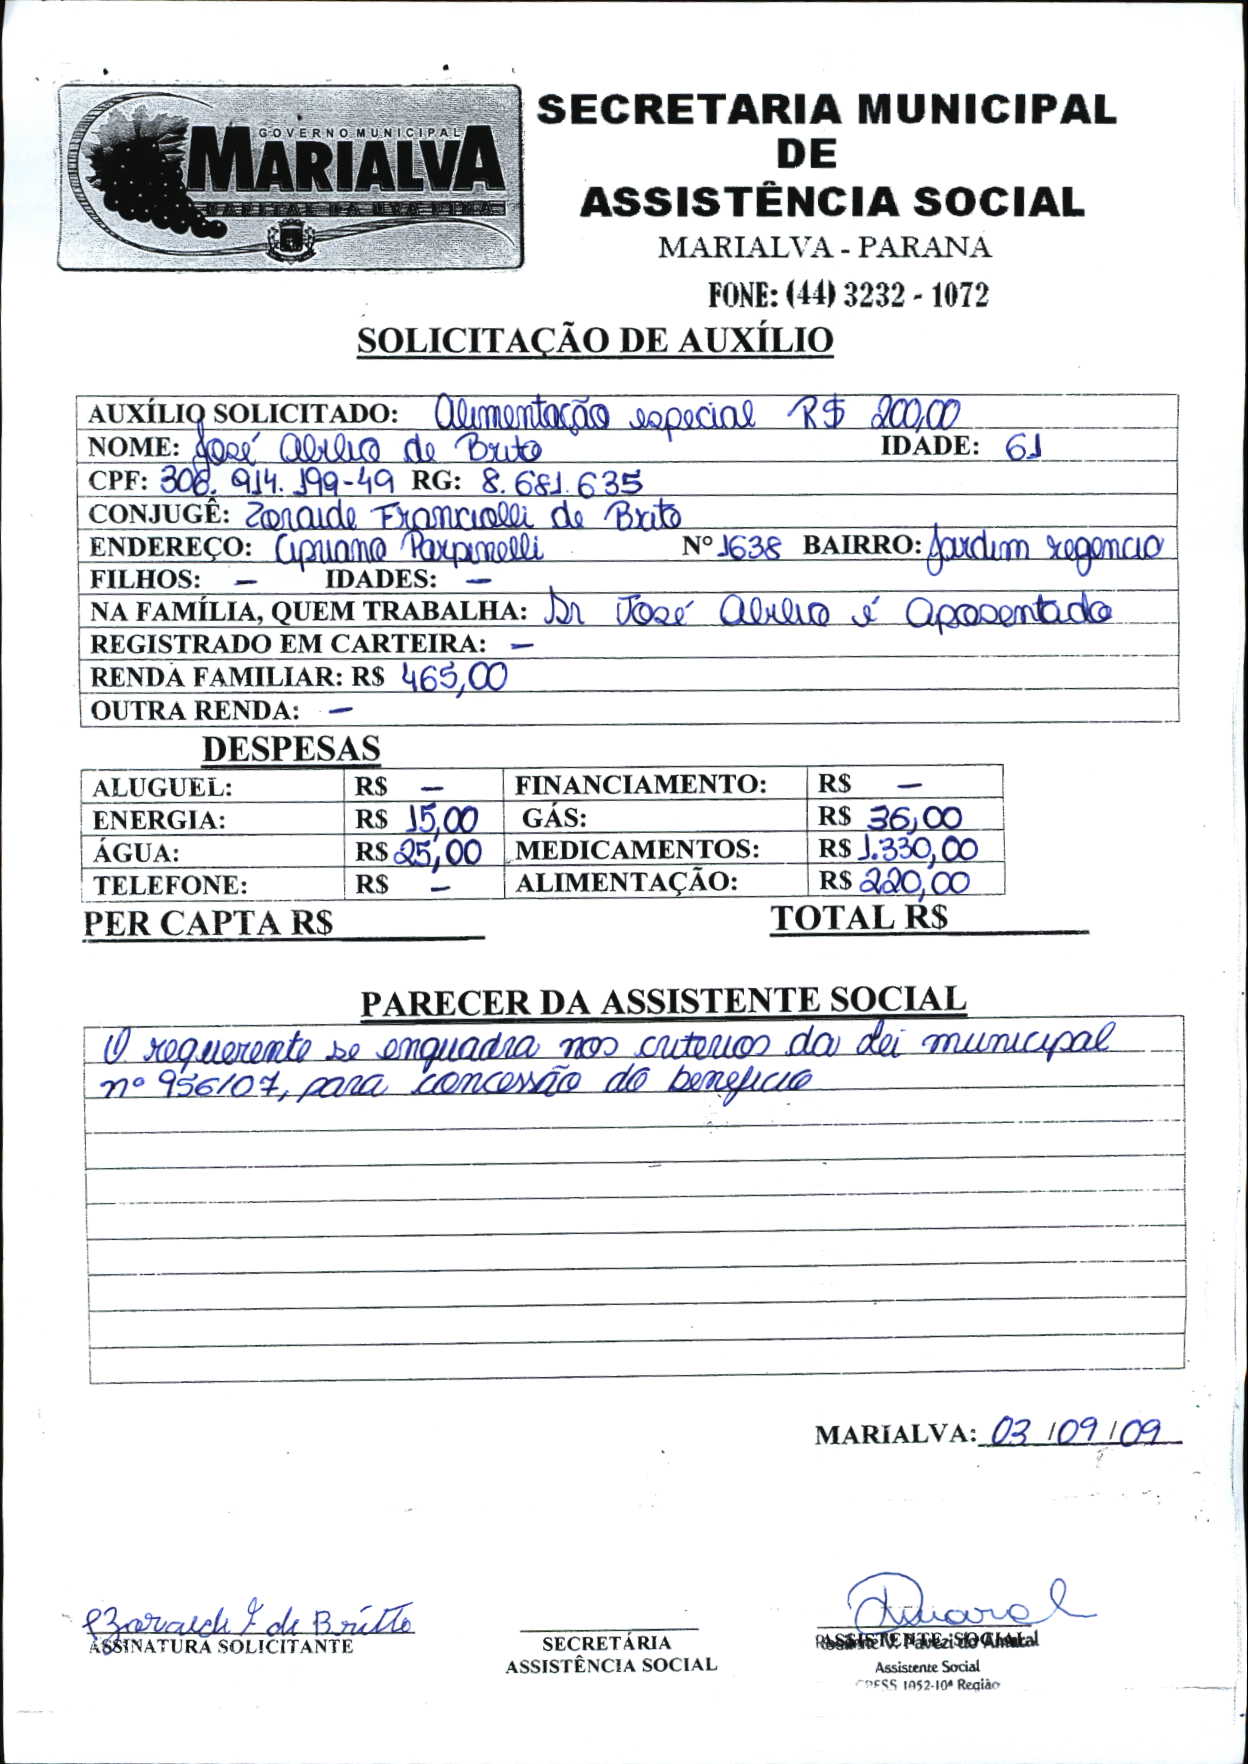 GOVERNO MUNICIPAL
MARIALVA
CAPITAL DA UVA FINA
SECRETARIA MUNICIPAL
DE
ASSISTÊNCIA SOCIAL
MARIALVA - PARANA
FONE: (44) 3232 - 1072
SOLICITAÇÃO DE AUXÍLIO
AUXÍLIO SOLICITADO: Alimentação especial R$ 200,00
NOME: José Abilio de Brito IDADE: 61
CPF: 308.914.199-49 RG: 8.681.635
CONJUGÊ: Zoraide Francielli de Brito
ENDEREÇO: Cipriano Parpinelli Nº 1638 BAIRRO: Jardim regencia
FILHOS: – IDADES: –
NA FAMÍLIA, QUEM TRABALHA: Sr José Abilio é Aposentado
REGISTRADO EM CARTEIRA: –
RENDA FAMILIAR: R$ 465,00
OUTRA RENDA: –
DESPESAS
ALUGUEL: R$ – FINANCIAMENTO: R$ –
ENERGIA: R$ 15,00 GÁS: R$ 36,00
ÁGUA: R$ 25,00 MEDICAMENTOS: R$ 1.330,00
TELEFONE: R$ – ALIMENTAÇÃO: R$ 220,00
PER CAPTA R$ TOTAL R$
PARECER DA ASSISTENTE SOCIAL
O requerente se enquadra nos criterios da Lei municipal
nº 956/07, para concessão do beneficio
MARIALVA: 03/09/09
Zoraide F de Britto
ASSINATURA SOLICITANTE
SECRETÁRIA
ASSISTÊNCIA SOCIAL
ASSISTENTE SOCIAL
V. Pavezi do Amaral
Assistente Social
CRESS 1052-10ª Região